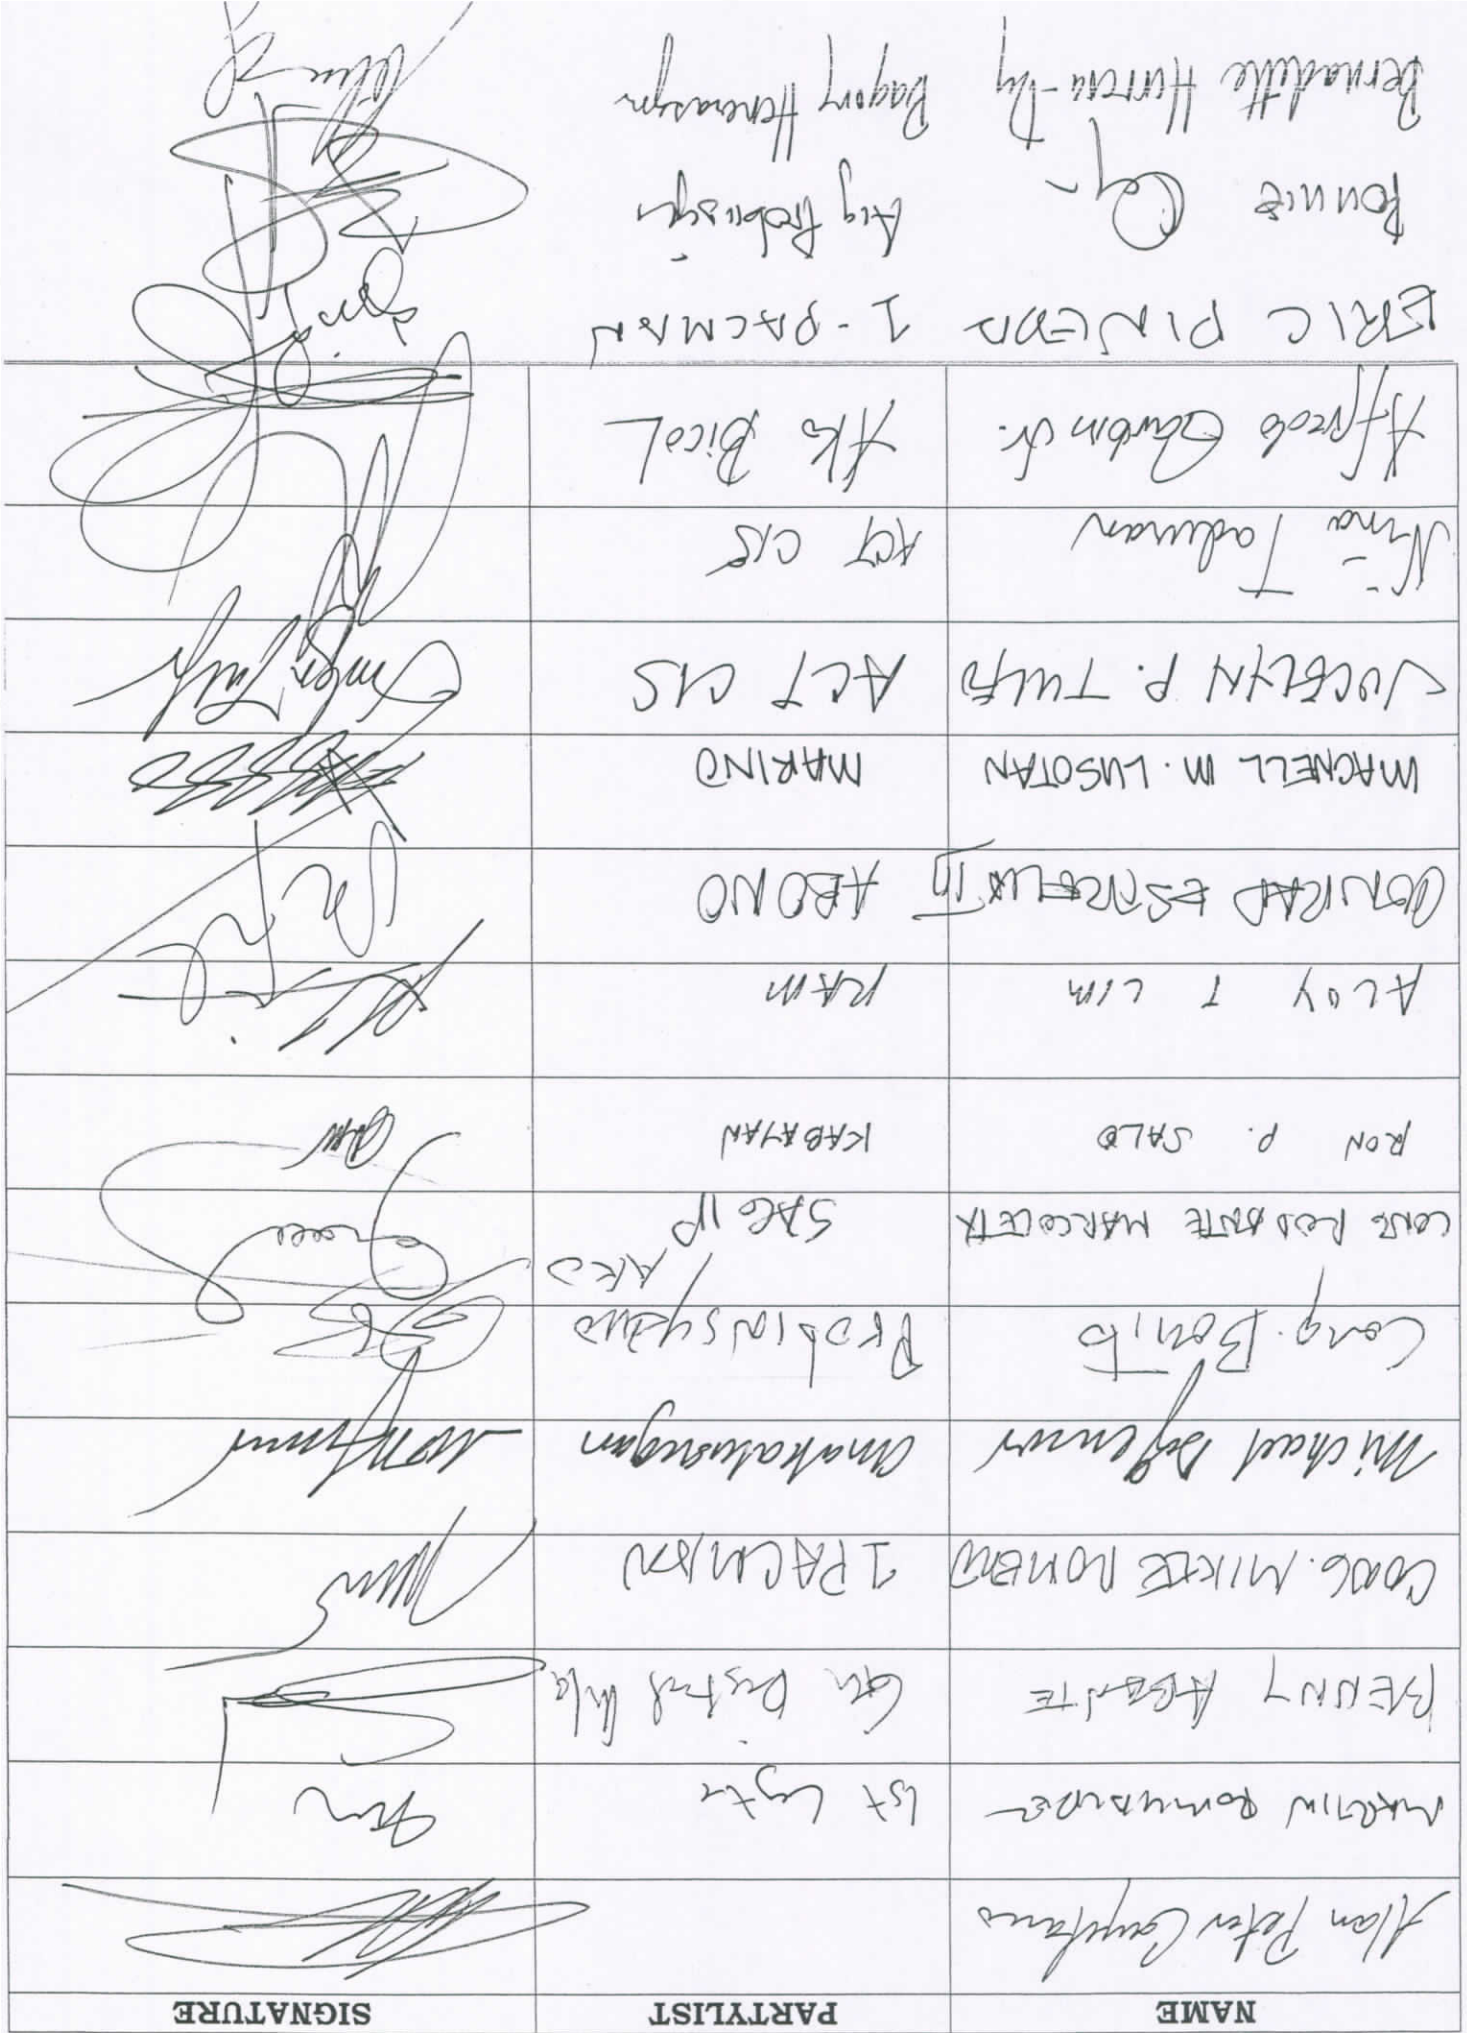 NAME PARTYLIST SIGNATURE
Alan Peter Cayetano
MARTIN ROMUALDEZ 1st Leyte
BENNY ABANTE 6th District Mla
CONG. MIKEE ROMERO 1PACMAN
Michael Defensor Anakalusugan
Cong. Bonito PROBINSYANO
/AKO
CONG RODANTE MARCOLETA SAGIP
RON P. SALO KABAYAN
ALOY T LIM RAM
CONRAD ESTRELLA III ABONO
MACNELL M. LUSOTAN MARINO
JOCELYN P. TULFO ACT CIS
Niña Taduran ACT CIS
Alfredo Garbin Jr. AKO BICOL
ERIC PINEDA 1-PACMAN
RONNIE Ong Ang Probinsyano
Bernadette Herrera-Dy Bagong Henerasyon